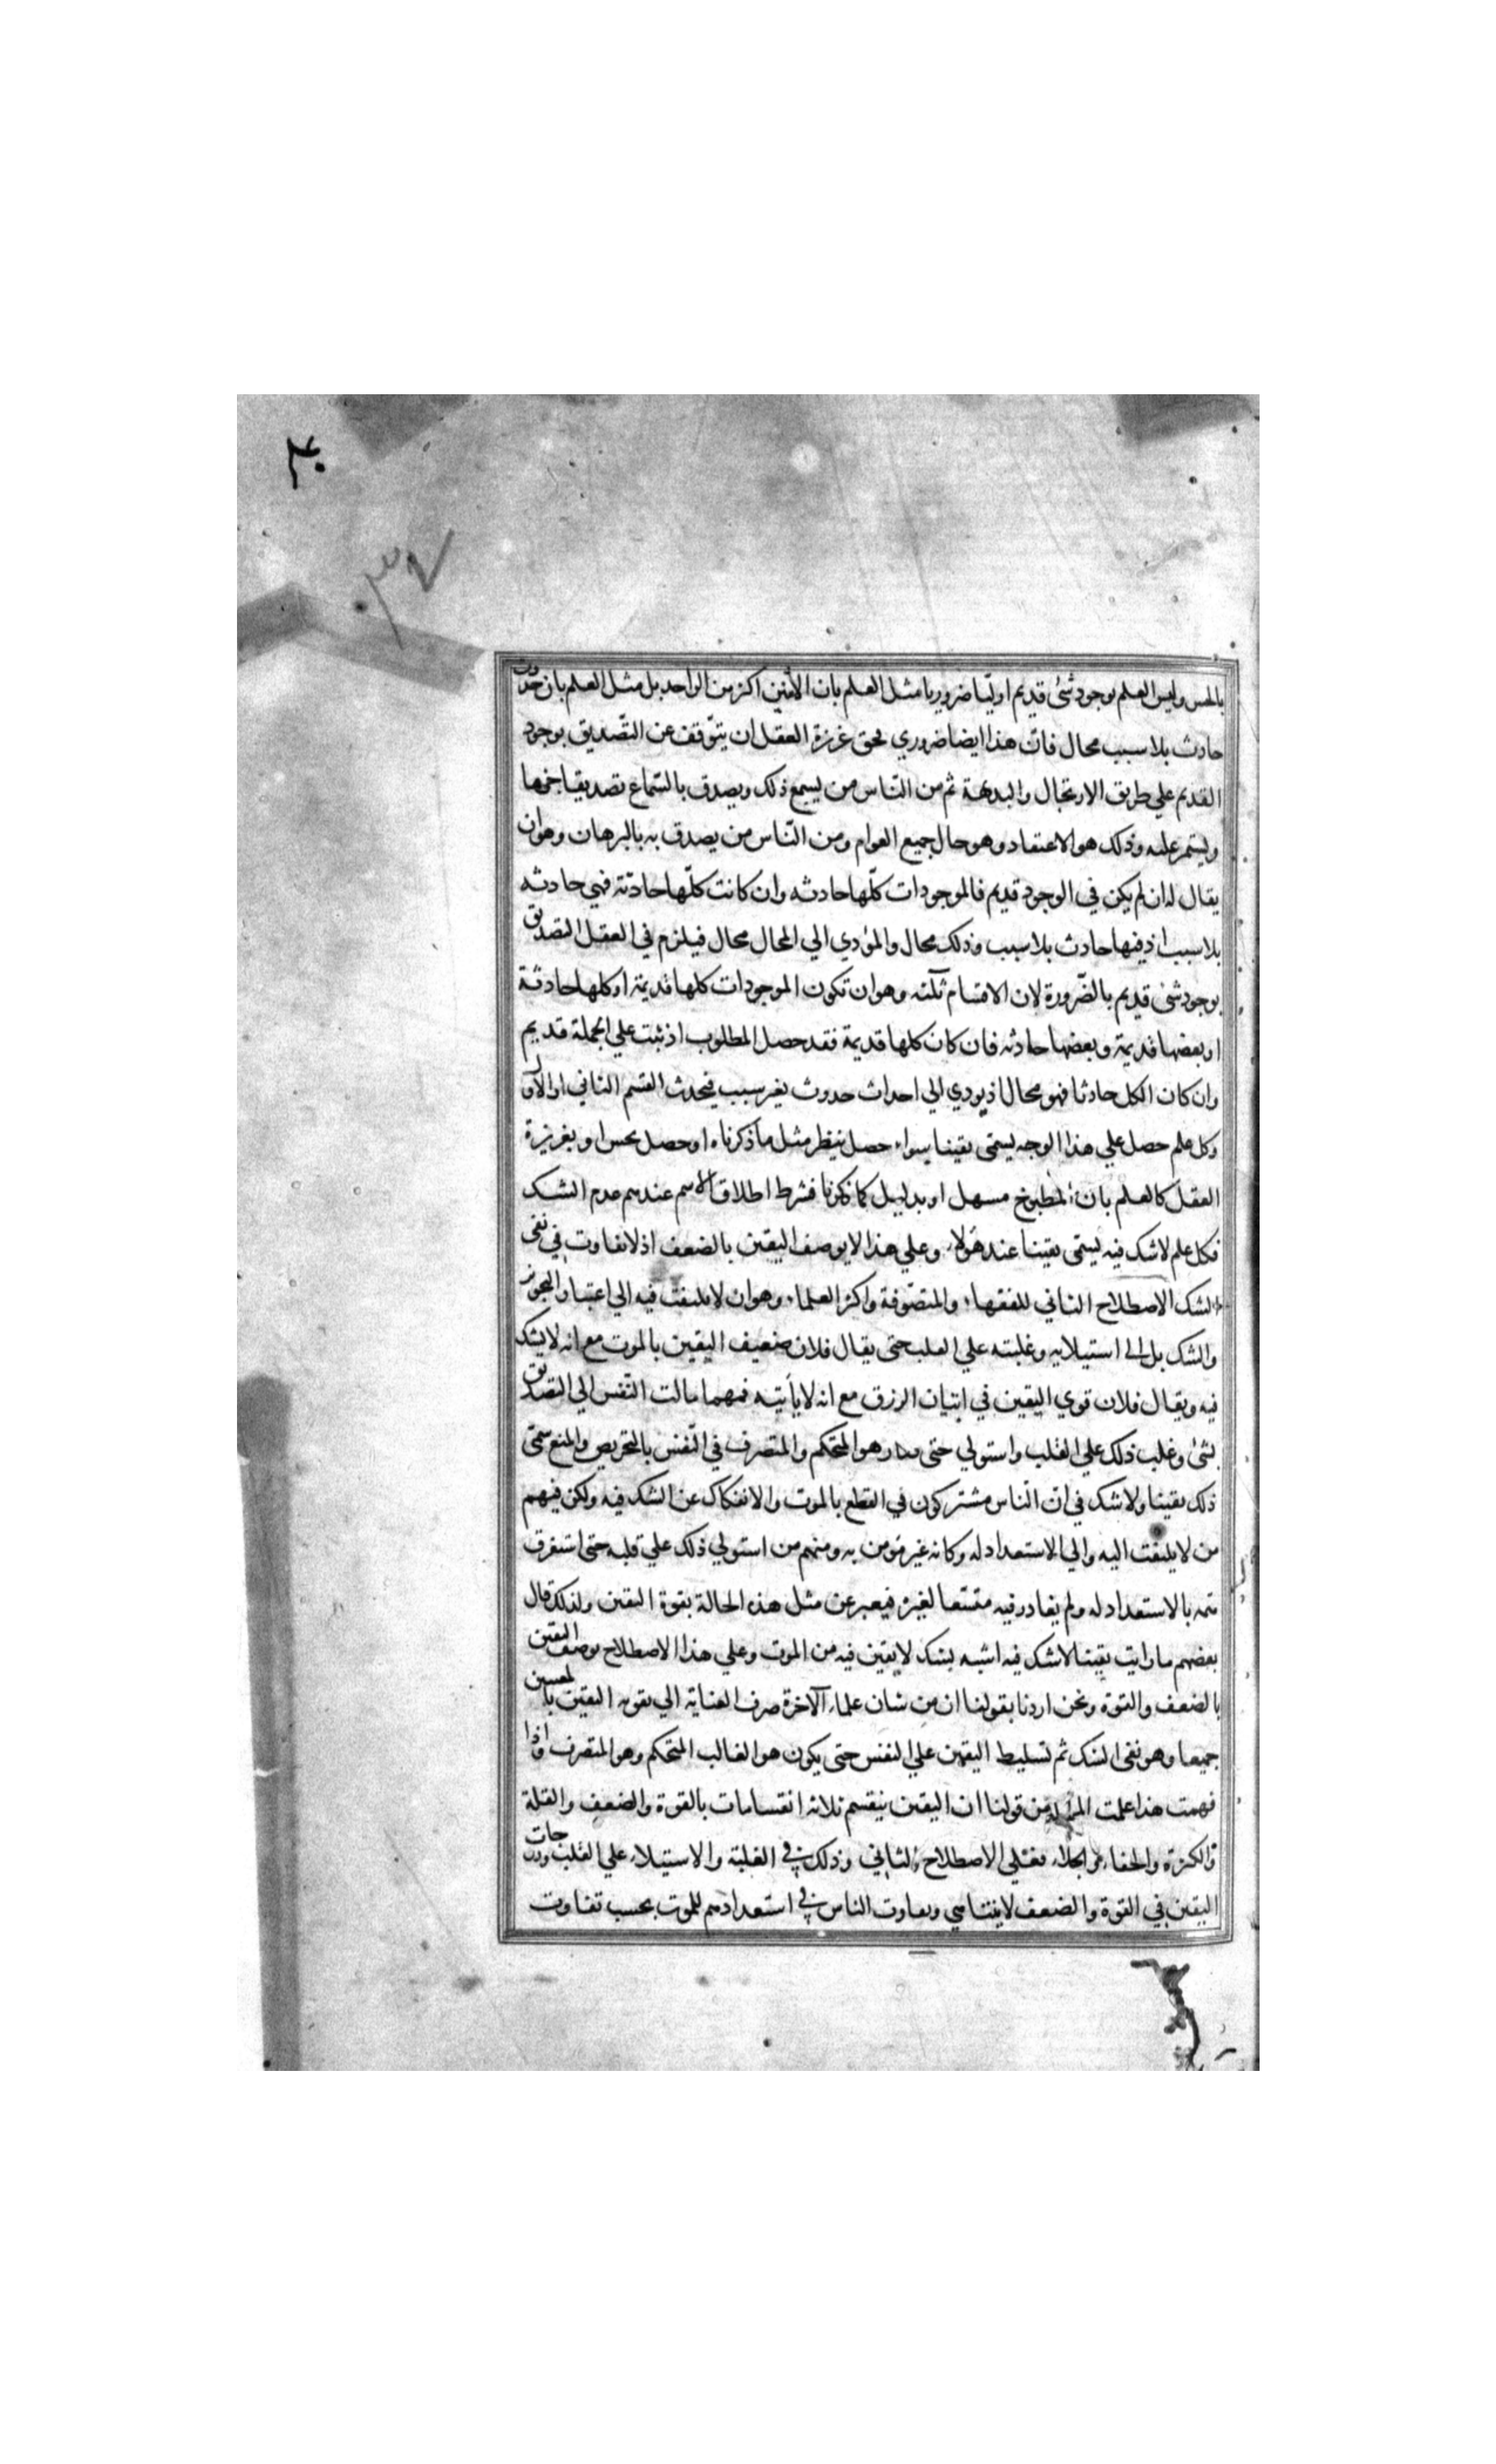 ۴۰
۳۷
بالحس وليس العلم بوجود شئ قديم اوليّا ضروريا مثل العلم بان الاثنين اكثر من الواحد بل مثل العلم بان حدوث
حادث بلا سبب محال فانّ هذا ايضا ضروري فحق غريزة العقل ان يتوّقف عن التّصديق بوجود
القديم علي طريق الارتجال والبديهة ثم من النّاس من يسمع ذلك ويصدق بالسّماع تصديقا جزما
ويستمر عليه وذلك هو الاعتقاد وهو حال جميع العوام ومن النّاس من يصدق به بالبرهان وهو ان
يقال له ان لم يكن في الوجود قديم فالموجودات كلّها حادثه وان كانت كلّها حادثة فهي حادثه
بلا سبب اذ فيها حادث بلا سبب وذلك محال والمؤدي الي المحال محال فيلزم في العقل التصديق
بوجود شئ قديم بالضّرورة لان الاقسام ثلثه وهو ان تكون الموجودات كلها قديمة او كلها حادثة
او بعضها قديمة وبعضها حادثه فان كان كلها قديمة فقد حصل المطلوب اذ ثبت علي الجملة قديم
وان كان الكل حادثا فهو محال اذ يودي الي احداث حدوث بغير سبب فيحدث القسم الثاني او الاول
وكل علم حصل علي هذا الوجه يسمّى يقينا سواء حصل بنظر مثل ما ذكرناه او حصل بحس او بغريزة
العقل كالعلم بان المطبوخ مسهل او بدليل كما ذكرنا فشرط اطلاق الاسم عندهم عدم الشك
فكل علم لا شك فيه يسمّى يقينا عند هؤلاء وعلي هذا لا يوصف اليقين بالضعف اذ لا تفاوت في نفى
الشك الاصطلاح الثاني للفقهاء والمتصّوفة واكثر العلماء وهو ان لا يلتفت فيه الي اعتبار التجويز
والشك بل الى استيلايه وغلبته علي القلب حتى يقال فلان ضعيف اليقين بالموت مع انه لا يشك
فيه ويقال فلان قوي اليقين في اتيان الرزق مع انه لا يأتيه فمهما مالت النّفس الي التصديق
بشئ وغلب ذلك علي القلب واستولي حتى صار هو المتحكم والمتصرف في النّفس بالتحريص والمنع سمّى
ذلك يقينا ولا شك في انّ النّاس مشتركون في القطع بالموت والانفكاك عن الشك فيه ولكن فيهم
من لا يلتفت اليه والي الاستعداد له وكانه غير مؤمن به ومنهم من استولي ذلك علي قلبه حتى استغرق
همّه بالاستعداد له ولم يغادر فيه متّسعا لغيره فيعبر عن مثل هذه الحالة بقوة اليقين ولذلك قال
بعضهم ما رايت يقينا لا شك فيه اشبه بشك لا يقين فيه من الموت وعلي هذا الاصطلاح يوصف اليقين
بالضعف والقوة ونحن اردنا بقولنا ان من شان علماء الآخرة صرف العناية الي تقويه اليقين بالمعنيين
جميعا وهو نفى الشك ثم تسليط اليقين علي النفس حتى يكون هو الغالب المتحكم وهو المتصرف واذا
فهمت هذا علمت المراد من قولنا ان اليقين ينقسم ثلاثه انقسامات بالقوة والضعف والقلة
والكثرة والخفاء والجلاء فعلي الاصطلاح الثاني وذلك في الغلبة والاستيلاء علي القلب ودرجات
اليقين في القوة والضعف لا يتناهي وتفاوت الناس في استعدادهم للموت بحسب تفاوت